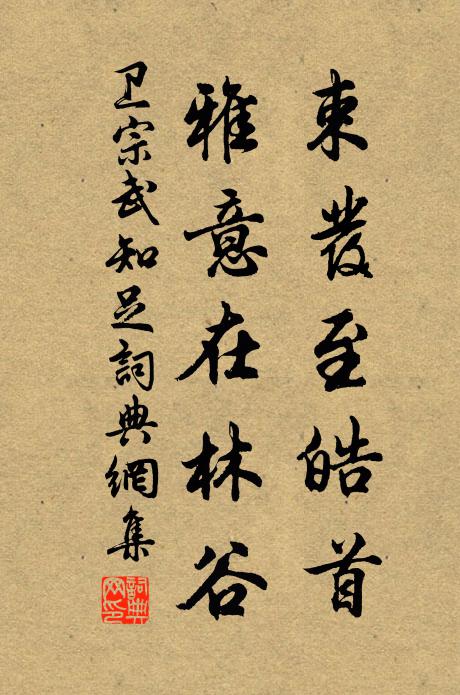 束發至皓首
雅意在林谷
卫宗武知足詞典網集
詞典網印